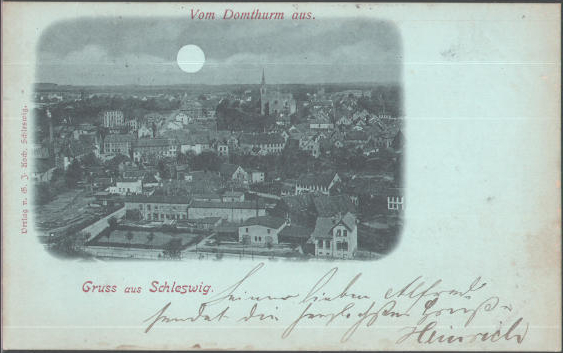 Vom Domthurm aus.
Verlag v. G. J. Koch, Schleswig.
Gruss aus Schleswig.
Seinem lieben Alfred
sendet die herzlichsten Grüße
Heinrich